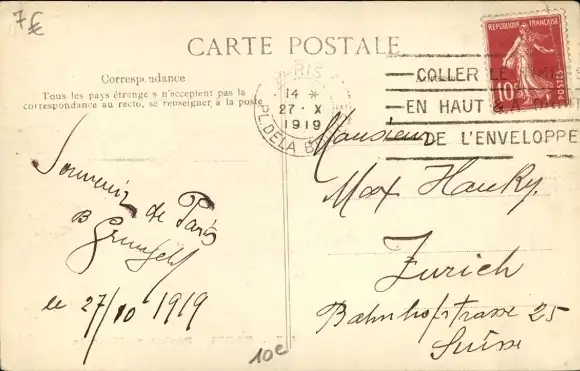 7€
CARTE POSTALE
Correspondance
Tous les pays étrangers n'acceptent pas la
correspondance au recto, se renseigner à la poste
Souvenir
de Paris
B
le 27/10 1919
10e
REPUBLIQUE FRANÇAISE
10c
POSTES
PARIS
14 *
27 · X
1919
PL. DE LA B
COLLER LE
EN HAUT & A
DE L'ENVELOPPE
Monsieur
Max Hauky.
Zurich
Bahnhofstrasse 25
Suisse